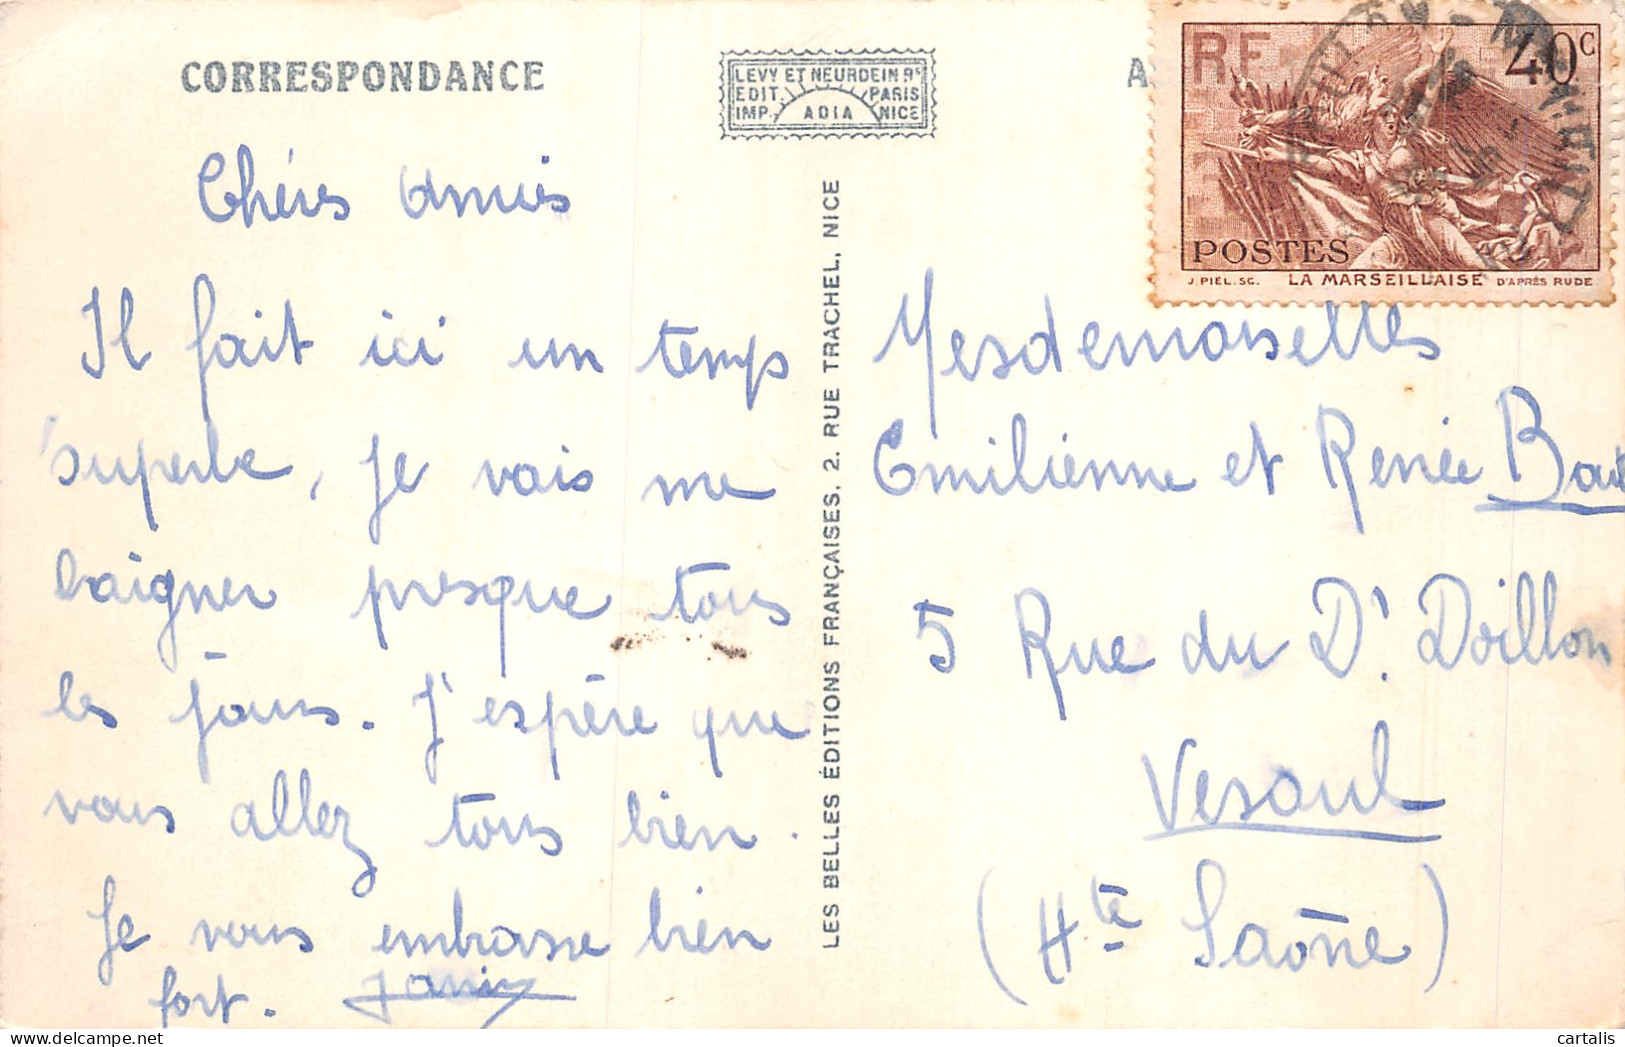 CORRESPONDANCE
LEVY ET NEURDEIN Rs
EDIT. PARIS
IMP. ADIA NICE
A
RF 40c
POSTES
J. PIEL. SC. LA MARSEILLAISE D'APRÈS RUDE
Chéres amies
Il fait ici un temps
superbe, je vais me
baigner presque tous
les jours. J'espère que
vous allez tous bien.
Je vous embrasse bien
fort.
LES BELLES ÉDITIONS FRANÇAISES. 2. RUE TRACHEL, NICE
Mesdemoiselles
Emilienne et Renée
5 Rue du Dr. Doillon
Vesoul
(Hte Saône)
cartalis